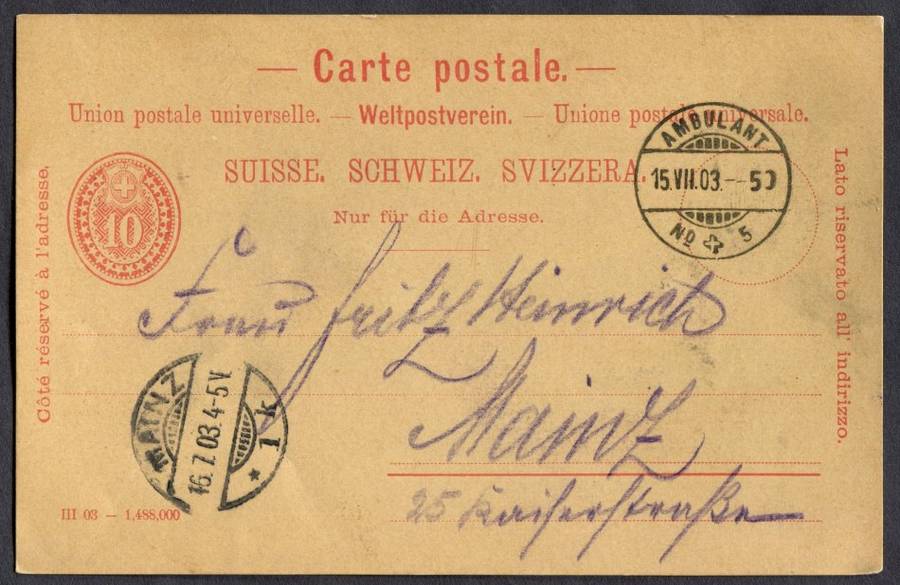 — Carte postale. —
Union postale universelle. — Weltpostverein. — Unione postale universale.
SUISSE. SCHWEIZ. SVIZZERA.
Nur für die Adresse.
Côté réservé à l'adresse.
Lato riservato all' indirizzo.
10
AMBULANT
15.VII.03.–50
No 5
Frau Fritz Heinrich
Mainz
25 Kaiserstraße
MAINZ
16.7.03.4-5V.
* 1 k
III 03 – 1,488,000